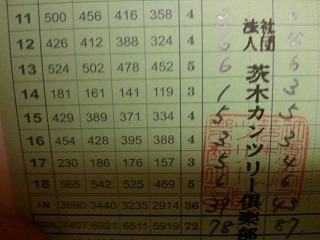 11 500 456 416 358 4 6
12 426 412 388 324 4 6
13 524 502 478 452 5 6 6
14 181 161 141 119 3 1 3
15 429 389 371 334 4 5 5
16 454 428 395 388 4 3 3
17 230 186 176 157 3 5 4
18 565 542 525 469 5 6 6
IN 3690 3440 3235 2914 36 39 43
7407 6921 6511 5919 72 78 87
社団
法人
茨木カンツリー倶楽部